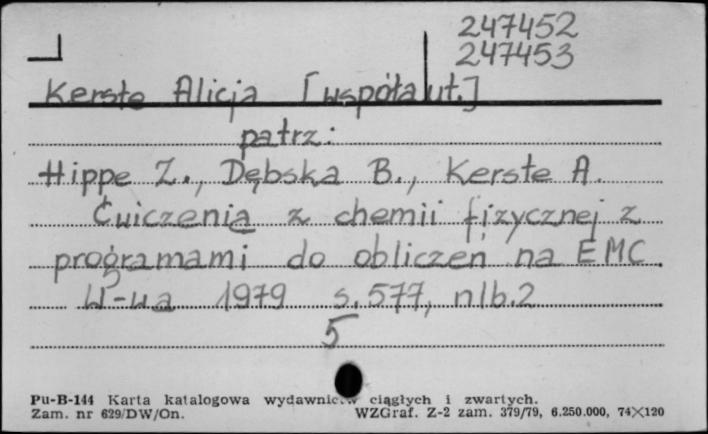 247452
247453
Kerste Alicja [współaut.]
patrz:
Hippe Z., Dębska B., Kerste A.
Ćwiczenia z chemii fizycznej z
programami do obliczeń na EMC.
W-wa 1979 s. 577, nlb. 2
5
Pu-B-144 Karta katalogowa wydawnictw ciągłych i zwartych.
Zam. nr 629/DW/On. WZGraf. Z-2 zam. 379/79, 6.250.000, 74×120